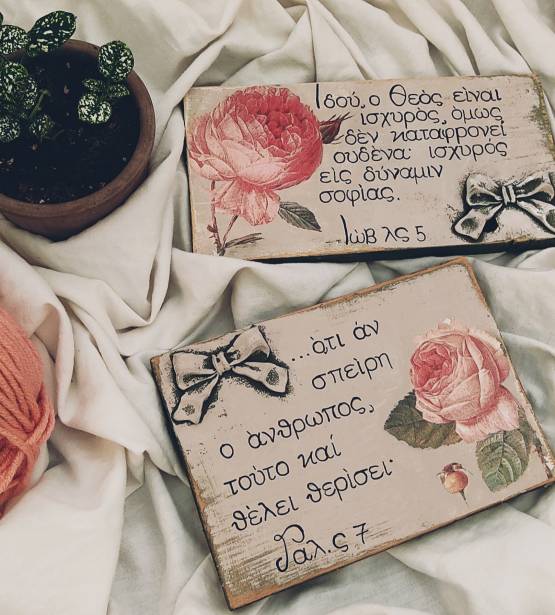 Ιδού, ο Θεὸς εἶναι
ισχυρὸς, ὅμως
δὲν καταφρονεί
ουδένα· ισχυρὸς
εἰς δύναμιν
σοφίας.
Ἰὼβ λς 5
...ὅτι ἀν
σπείρη
ο ἀνθρωπος,
τοῦτο καί
θέλει θερίσει·
Γαλ. ς 7